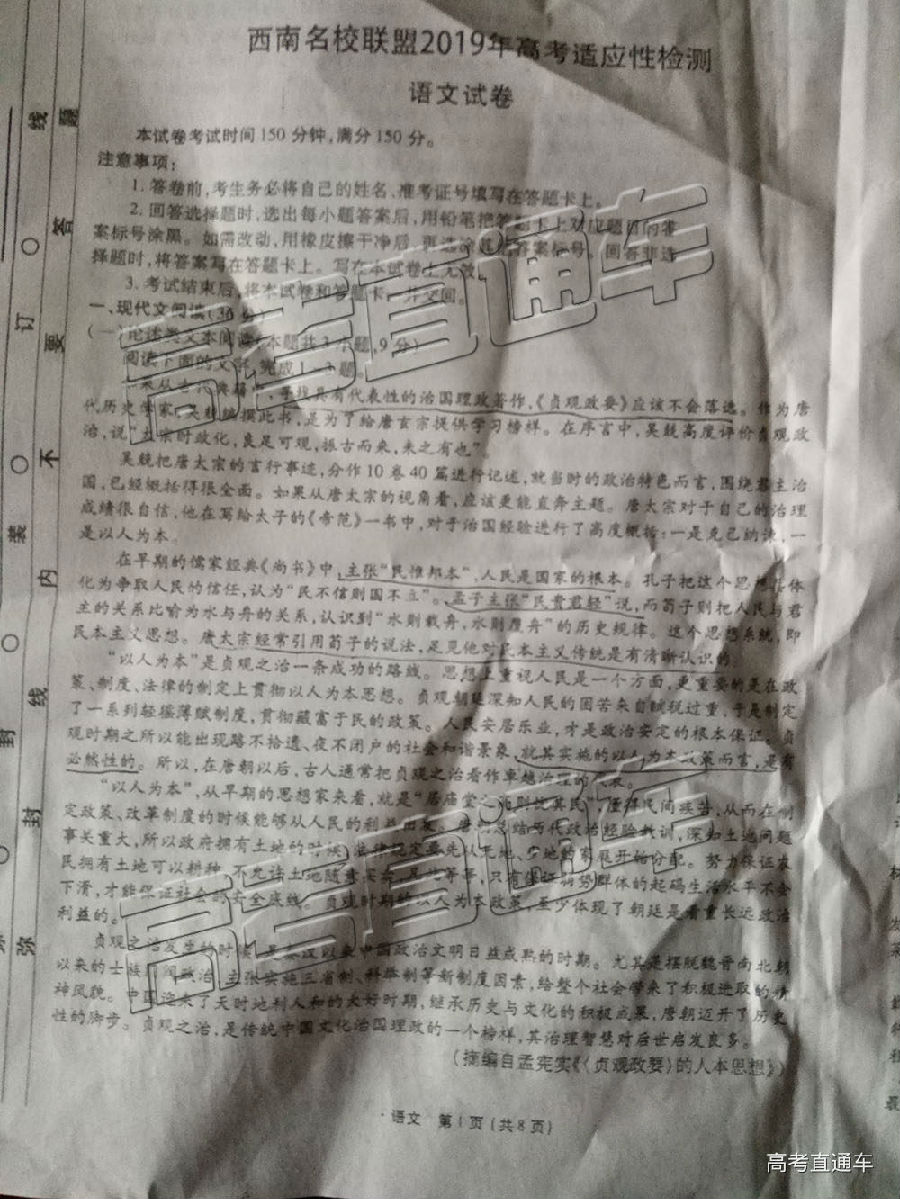 西南名校联盟2019年高考适应性检测
语文试卷
本试卷考试时间150分钟,满分150分。
注意事项:
1.答卷前,考生务必将自己的姓名、准考证号填写在答题卡上。
2.回答选择题时,选出每小题答案后,用铅笔把答题卡上对应题目的答
案标号涂黑。如需改动,用橡皮擦干净后,再选涂其他答案标号。回答非选
择题时,将答案写在答题卡上。写在本试卷上无效。
3.考试结束后,将本试卷和答题卡一并交回。
一、现代文阅读(36分)
(一)论述类文本阅读(本题共3小题,9分)
阅读下面的文字,完成1~3题。
寻找具有代表性的治国理政著作,《贞观政要》应该不会落选。作为唐
代历史学家,吴兢编撰此书,是为了给唐玄宗提供学习榜样。在序言中,吴兢高度评价贞观政
治,说“太宗时政化,良足可观,振古而来,未之有也”。
吴兢把唐太宗的言行事迹,分作10卷40篇进行记述,就当时的政治特色而言,围绕君主治
国,已经概括得很全面。如果从唐太宗的视角看,应该更能直奔主题。唐太宗对于自己的治理
成绩很自信,他在写给太子的《帝范》一书中,对于治国经验进行了高度概括:一是克己纳谏,一
是以人为本。
在早期的儒家经典《尚书》中,主张“民惟邦本”,人民是国家的根本。孔子把这个思想具体
化为争取人民的信任,认为“民不信则国不立”。孟子主张“民贵君轻”说,而荀子则把人民与君
主的关系比喻为水与舟的关系,认识到“水则载舟,水则覆舟”的历史规律。这个思想系统,即
民本主义思想。唐太宗经常引用荀子的说法,足见他对民本主义传统是有清晰认识的。
“以人为本”是贞观之治一条成功的路线。思想上重视人民是一个方面,更重要的是在政
策、制度、法律的制定上贯彻以人为本思想。贞观朝廷深知人民的困苦来自赋税过重,于是制定
了一系列轻徭薄赋制度,贯彻藏富于民的政策。人民安居乐业,才是政治安定的根本保证。贞
观时期之所以能出现路不拾遗、夜不闭户的社会和谐景象,就其实施的以人为本政策而言,是有
必然性的。所以,在唐朝以后,古人通常把贞观之治看作卓越治理的
“以人为本”,从早期的思想家来看,就是“居庙堂之高则忧其民”,懂得民间疾苦,从而在制
定政策、改革制度的时候能够从人民的利益出发。唐朝总结历代政治经验教训,深知土地问题
事关重大,所以政府拥有土地的时候,法律规定要先从无地、少地的家庭开始分配。努力保证农
民拥有土地可以耕种,不允许土地随意买卖,凡此等等,只有保证弱势群体的起码生活水平不会
下滑,才能保证社会的安全底线。贞观时期的以人为本政策,至少体现了朝廷是看重长远政治
利益的。
贞观之治发生的时候,是秦汉以来中国政治文明日益成熟的时期。尤其是摆脱魏晋南北朝
以来的士族门阀政治,主张实施三省制、科举制等新制度因素,给整个社会带来了积极进取的精
神风貌。中国迎来了天时地利人和的大好时期,继承历史与文化的积极成果,唐朝迈开了历史
性的脚步。贞观之治,是传统中国文化治国理政的一个榜样,其治理智慧对后世启发良多。
(摘编自孟宪实《〈贞观政要〉的人本思想》)
·语文 第1页(共8页)
线 订 装 封 弥
题 答 要 不 内 线 封 弥
高考直通车
高考直通车
高考直通车